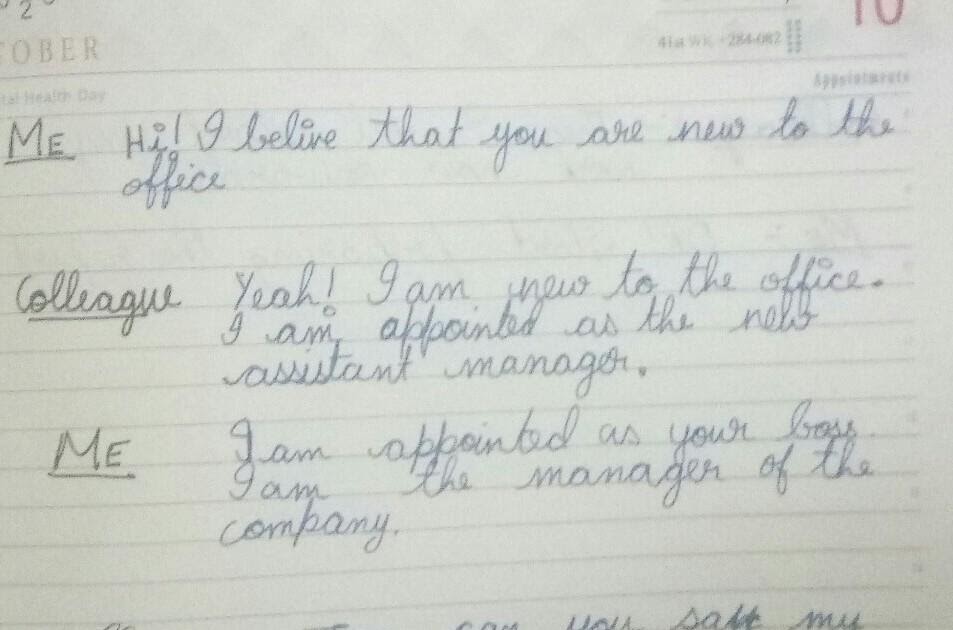 2
TOBER
10
41st WK - 284-082
Appointments
tal Health Day
ME Hi! I belive that you are new to the
office
Colleague Yeah! I am new to the office.
I am appointed as the new
assistant manager.
ME I am appointed as your boss
I am the manager of the
company.
can you
my